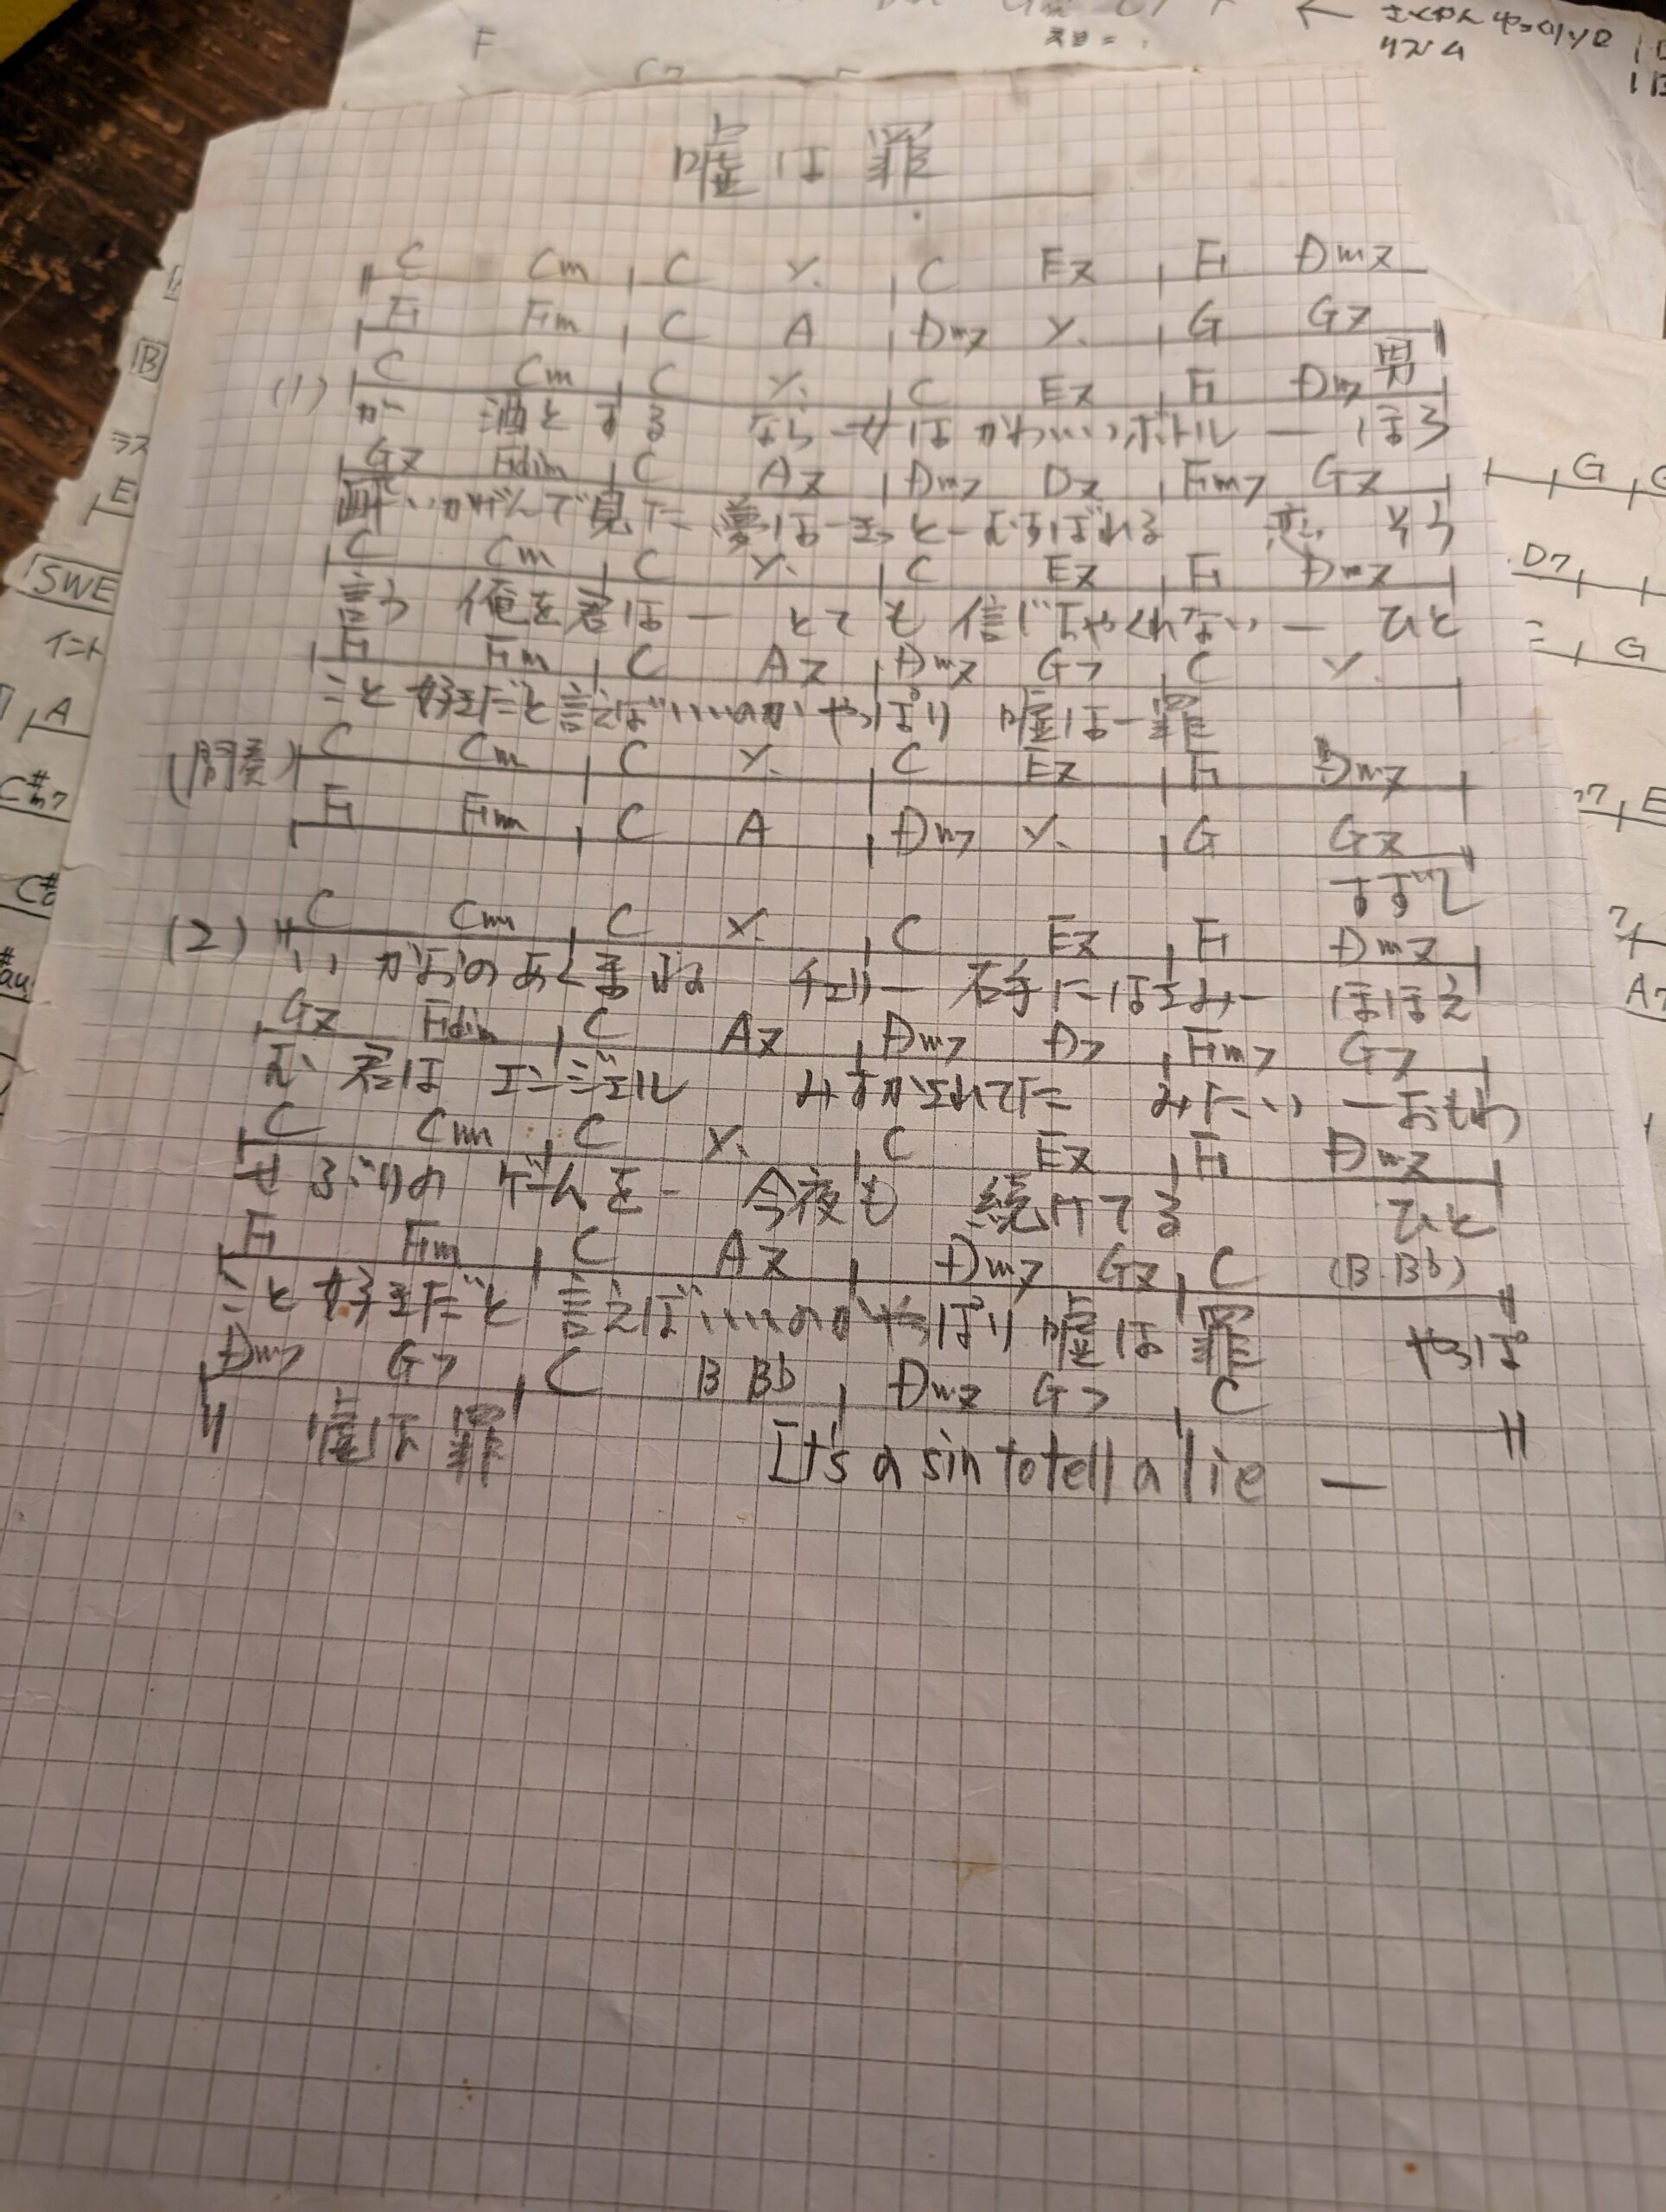 嘘は罪
C Cm C ٪ C E7 F Dm7
F Fm C A Dm7 ٪ G G7
男
(1) C Cm C ٪ C E7 F Dm7
が 酒とする なら 女はかわいいボトル ー ほろ
G7 Fdim C A7 Dm7 D7 Fm7 G7
酔いかげんで見た 夢は ー きっと ー むすばれる 恋 そう
C Cm C ٪ C E7 F Dm7
言う 俺を君は ー とても 信じちゃくれない ー ひと
F Fm C A7 Dm7 G7 C ٪
こと好きだと言えばいいのが やっぱり 嘘は ー 罪
(間奏) C Cm C ٪ C E7 F Dm7
F Fm C A Dm7 ٪ G G7
すずし
(2) C Cm C ٪ C E7 F Dm7
い かおのあくまね チェリー 右手にほおづみー ほほえ
G7 Fdim C A7 Dm7 D7 Fm7 G7
む 君は エンジェル みすかされてた みたい ー おもわ
C Cm C ٪ C E7 F Dm7
せぶりの ゲームを ー 今夜も 続けてる ひと
F Fm C A7 Dm7 G7 C (B Bb)
こと好きだと 言えばいいのが やっぱり 嘘は 罪 やっぱ
Dm7 G7 C B Bb Dm7 G7 C
り 嘘は罪 It's a sin to tell a lie ー
SWE
イント
ラス
B
E
A
C#m7
G
D7
G
リズム
F